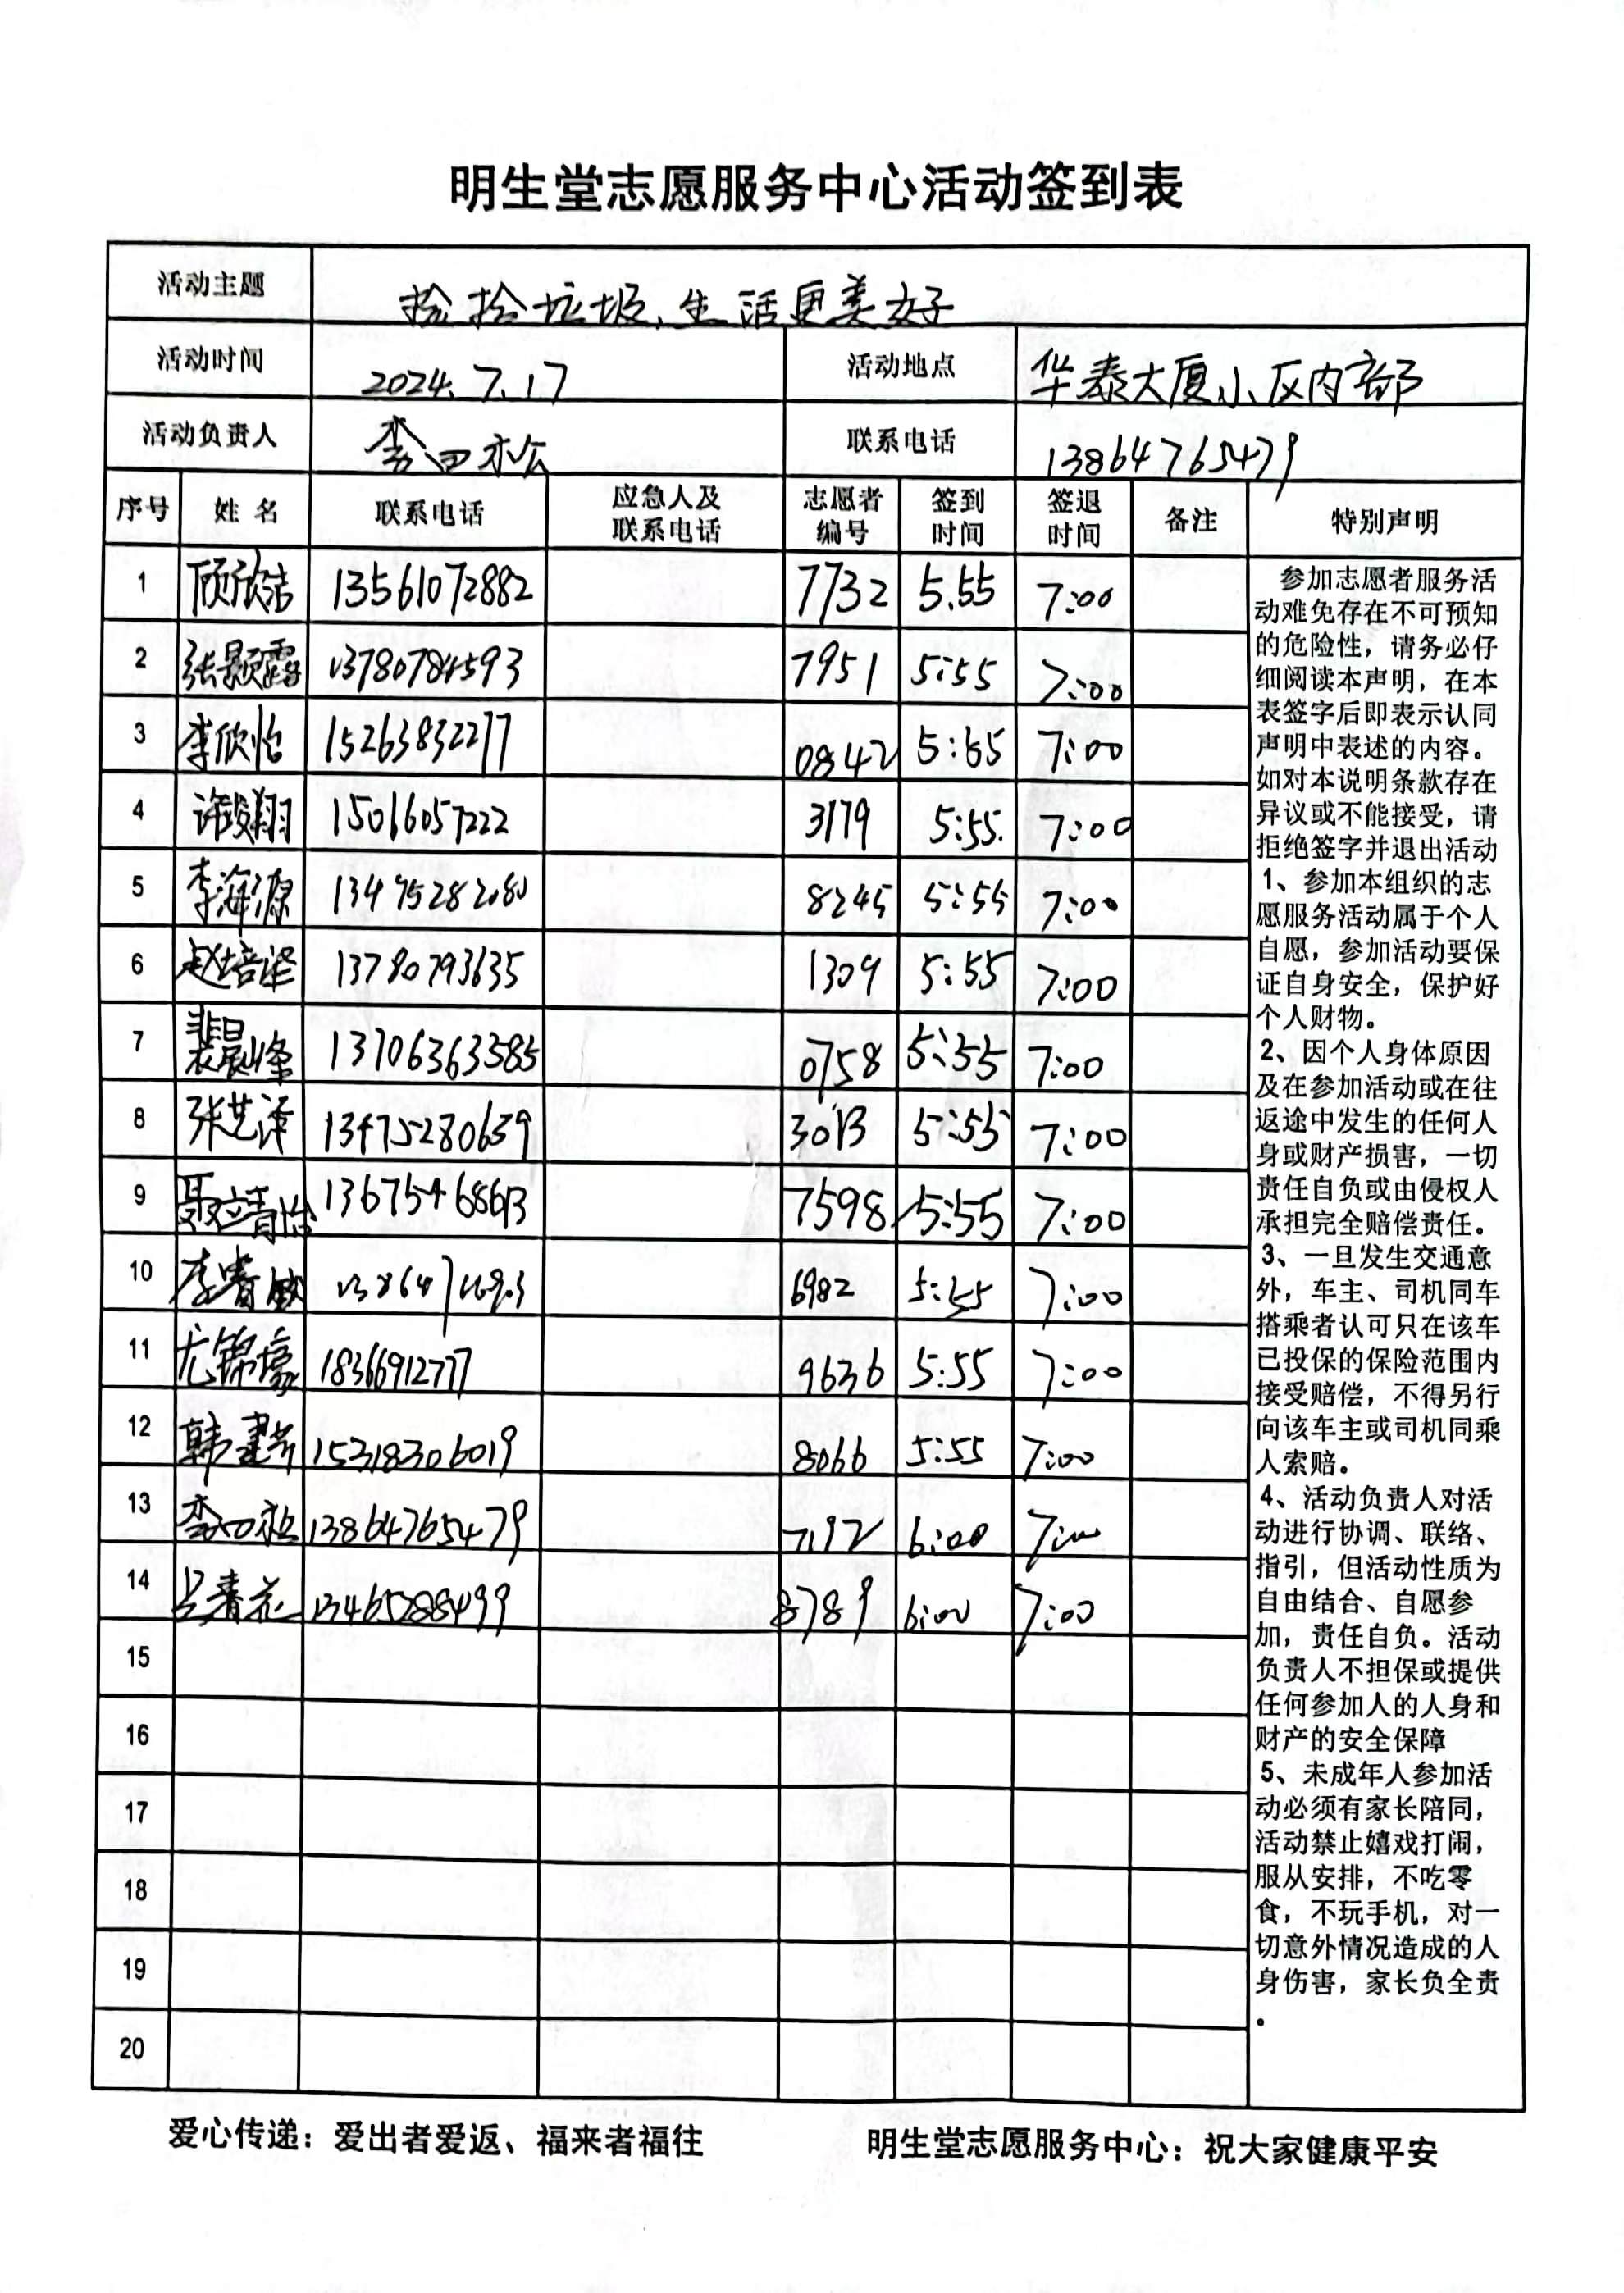 明生堂志愿服务中心活动签到表
活动主题 捡拾垃圾,生活更美好
活动时间 2024.7.17 活动地点 华泰大厦小区内部
活动负责人 联系电话 13864765479
序号 姓名 联系电话 应急人及联系电话 志愿者编号 签到时间 签退时间 备注 特别声明
1 顾欣洁 13561072882 7732 5.55 7:00
2 张景露 13780784593 7951 5:55 7:00
3 李欣怡 15263832277 0842 5:55 7:00
4 15016057222 3179 5:55. 7:00
5 李海源 13475282080 8245 5:55 7:00
6 赵培泽 13780793635 1309 5:55 7:00
7 裴晨峰 13706363585 0758 5:55 7:00
8 张艺泽 13475280639 3013 5:55 7:00
9 聂靖怡 7598 5:55 7:00
10 李青敏 6982 5:55 7:00
11 尤锦豪 18366912777 9636 5:55 7:00
12 韩建芳 15318306019 8066 5:55 7:00
13 13864765479 7192 6:00 7:00
14 吕青花 13465288499 8789 6:00 7:00
15
16
17
18
19
20
参加志愿者服务活
动难免存在不可预知
的危险性，请务必仔
细阅读本声明，在本
表签字后即表示认同
声明中表述的内容。
如对本说明条款存在
异议或不能接受，请
拒绝签字并退出活动
1、参加本组织的志
愿服务活动属于个人
自愿，参加活动要保
证自身安全，保护好
个人财物。
2、因个人身体原因
及在参加活动或在往
返途中发生的任何人
身或财产损害，一切
责任自负或由侵权人
承担完全赔偿责任。
3、一旦发生交通意
外，车主、司机同车
搭乘者认可只在该车
已投保的保险范围内
接受赔偿，不得另行
向该车主或司机同乘
人索赔。
4、活动负责人对活
动进行协调、联络、
指引，但活动性质为
自由结合、自愿参
加，责任自负。活动
负责人不担保或提供
任何参加人的人身和
财产的安全保障
5、未成年人参加活
动必须有家长陪同，
活动禁止嬉戏打闹，
服从安排，不吃零
食，不玩手机，对一
切意外情况造成的人
身伤害，家长负全责
。
爱心传递：爱出者爱返、福来者福往 明生堂志愿服务中心：祝大家健康平安